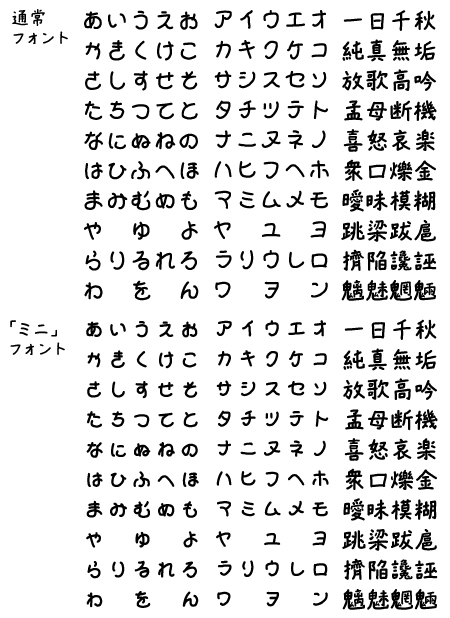 通常
フォント
あいうえお アイウエオ 一日千秋
かきくけこ カキクケコ 純真無垢
さしすせそ サシスセソ 放歌高吟
たちつてと タチツテト 孟母断機
なにぬねの ナニヌネノ 喜怒哀楽
はひふへほ ハヒフヘホ 衆口爍金
まみむめも マミムメモ 曖昧模糊
や ゆ よ ヤ ユ ヨ 跳梁跋扈
らりるれろ ラリウレロ 擠陥讒誣
わ を ん ワ ヲ ン 魑魅魍魎
「ミニ」
フォント
あいうえお アイウエオ 一日千秋
かきくけこ カキクケコ 純真無垢
さしすせそ サシスセソ 放歌高吟
たちつてと タチツテト 孟母断機
なにぬねの ナニヌネノ 喜怒哀楽
はひふへほ ハヒフヘホ 衆口爍金
まみむめも マミムメモ 曖昧模糊
や ゆ よ ヤ ユ ヨ 跳梁跋扈
らりるれろ ラリウレロ 擠陥讒誣
わ を ん ワ ヲ ン 魑魅魍魎